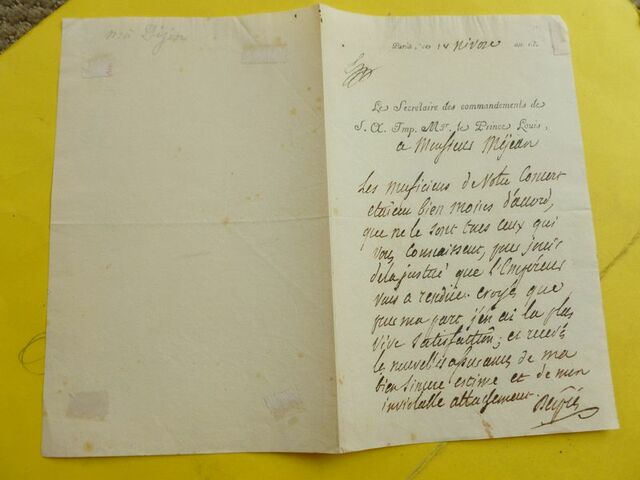 Dijon
Paris, ce 14 Nivose an 13.
Le Secrétaire des commandemens de
S. A. Imp. Mgr. le Prince Louis,
a Monsieur Méjean
Les musiciens de Notre Concert
etaient bien moins d'accord,
que ne le sont tous ceux qui
vous connaissent, pour jouir
de la justice que l'Empereur
vous a rendue. croyez que
pour ma part j'en ai la plus
vive satisfaction; et recevez
les nouvelles assurances de ma
bien sincere estime et de mon
inviolable attachement